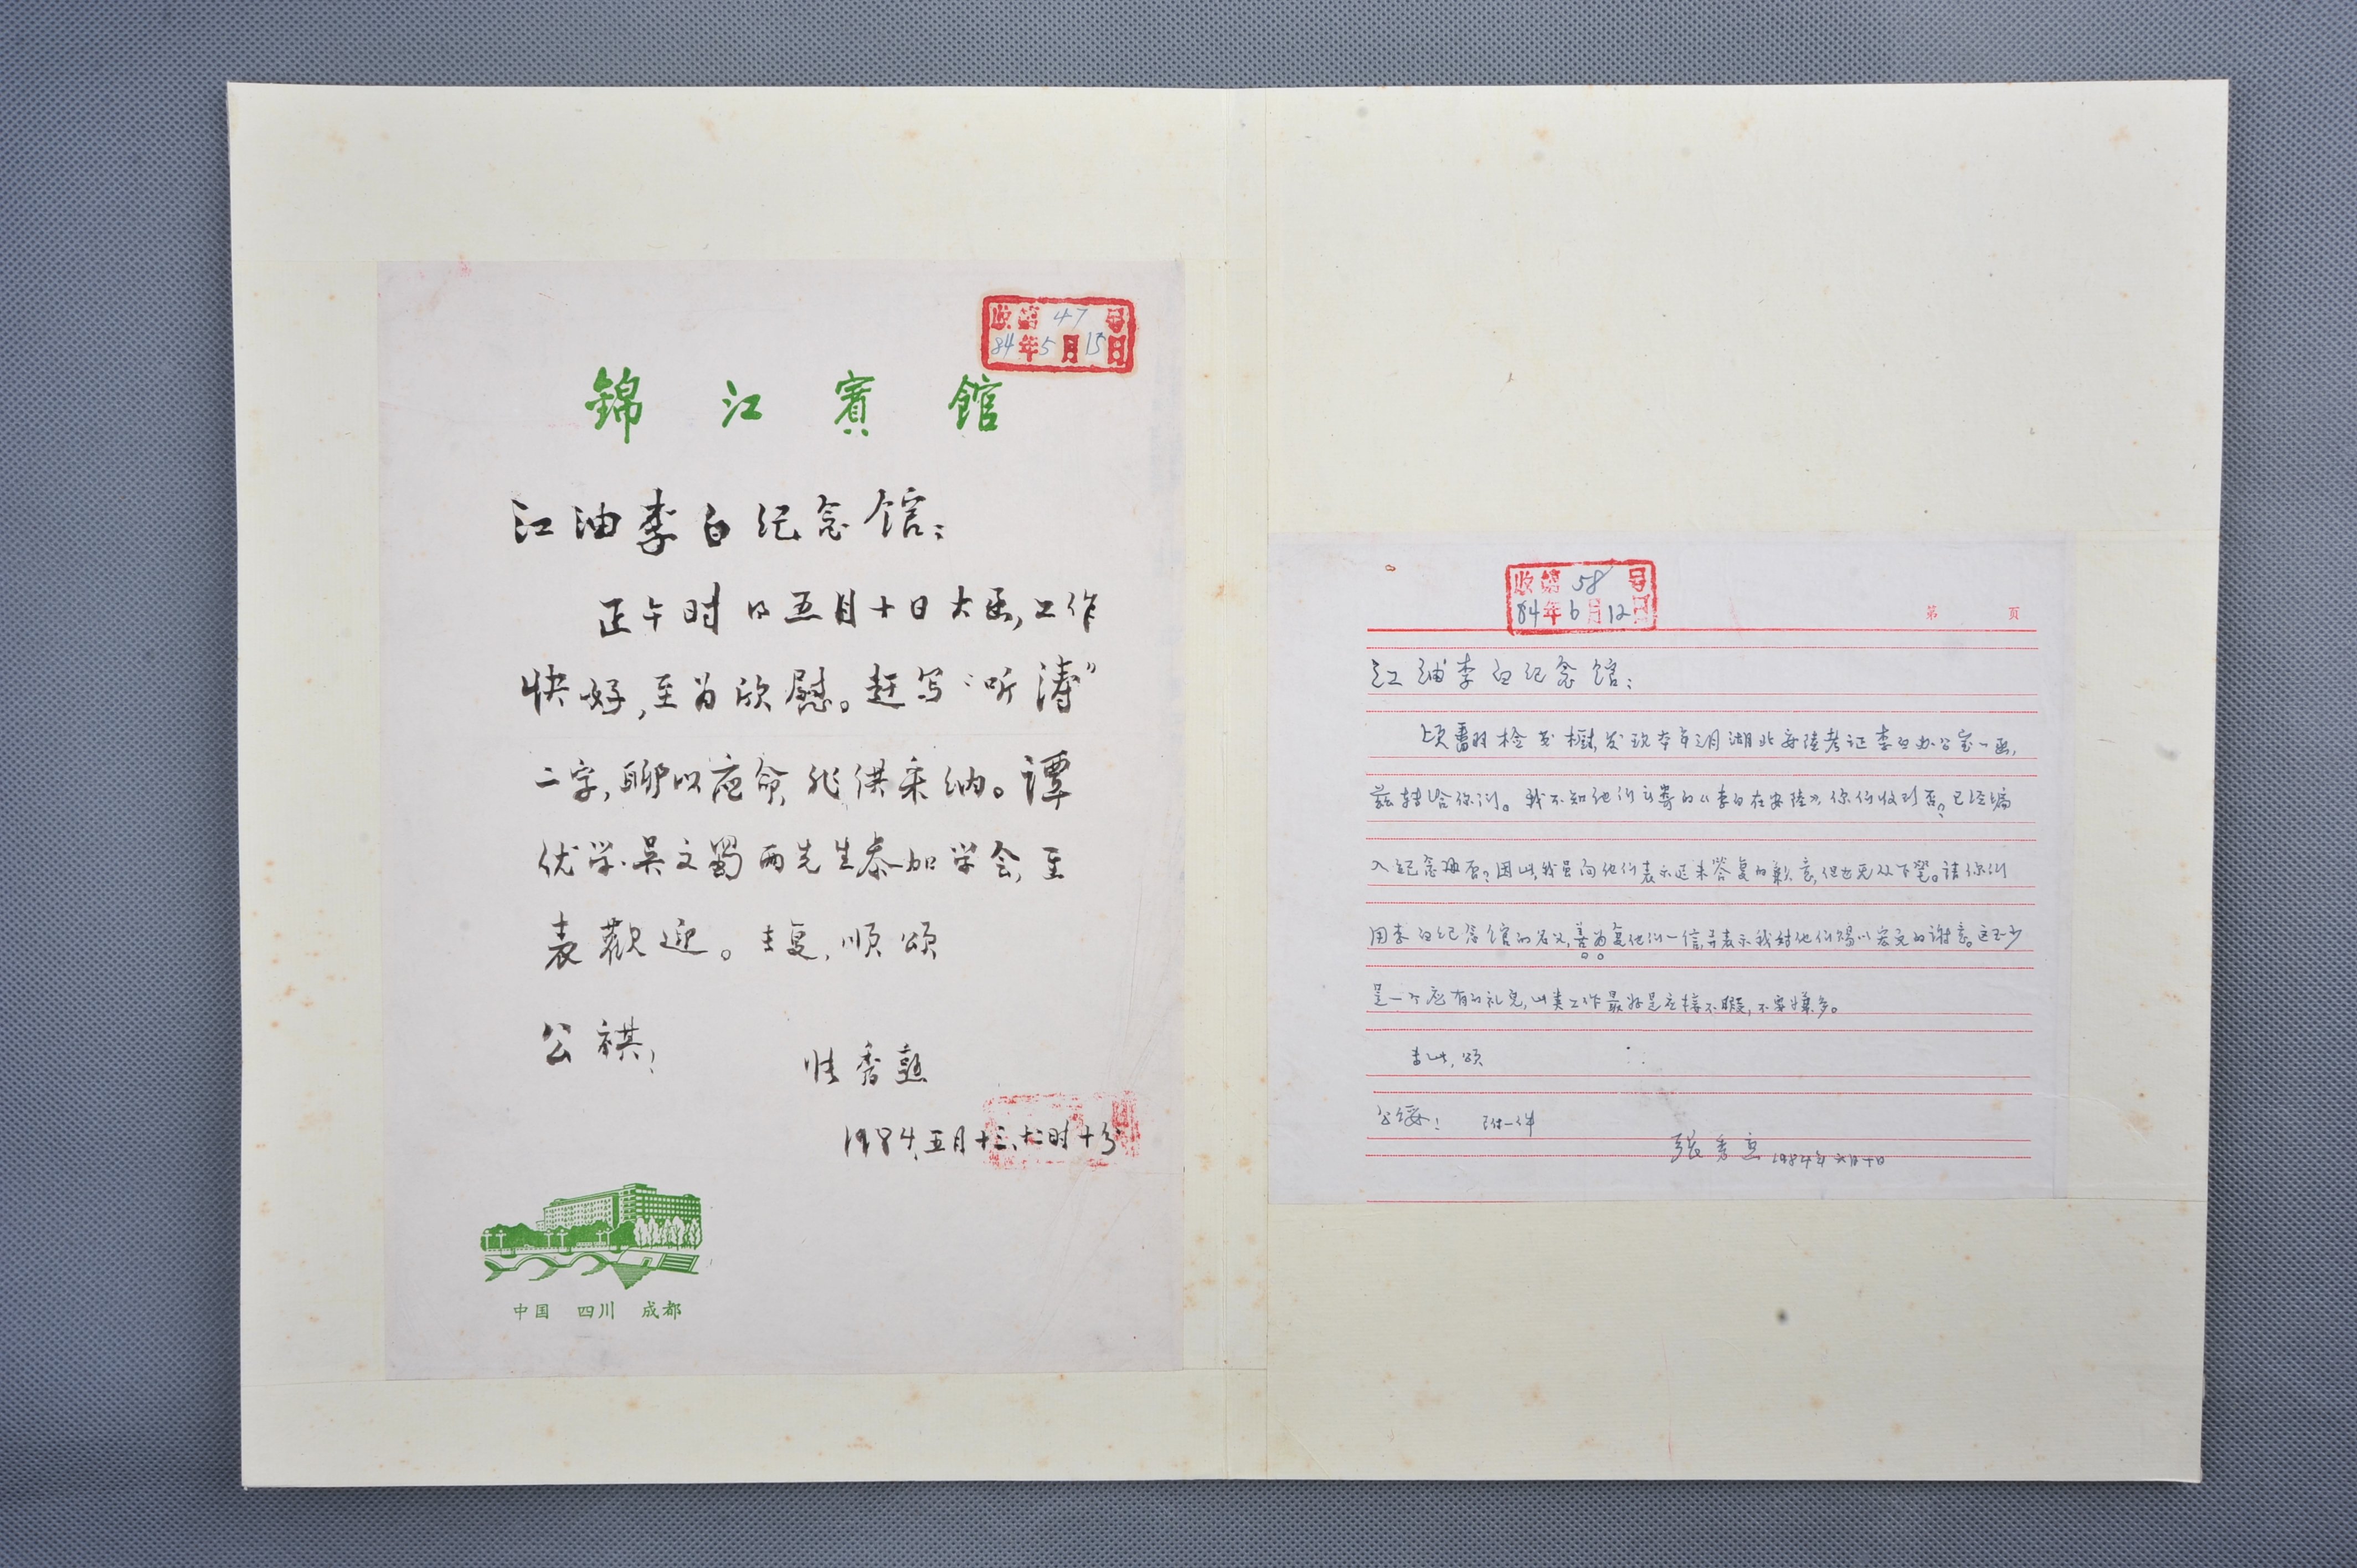 收第47号
84年5月15日
錦江賓館
江油李白纪念馆:
正午时的五月十日大函,工作
快好,至为欣慰。赶写“听涛”
二字,聊以应命,能供采纳。谭
优学、吴文蜀两先生参加学会,至
表歡迎。专复,顺颂
公祺!
张秀熟
1984.五月十三、十二时十分
中国 四川 成都
收第58号
84年6月12日
第 页
江油李白纪念馆:
顷翻检书橱,发现本年三月湖北安陆考证李白办公室一函,
兹转给你们。我不知他们之寄的《李白在安陆》,你们收到否?已经编
入纪念册否?因此,我虽向他们表示迟未答复的歉意,但也无从下笔。请你们
用李白纪念馆的名义,善为复他们一信,并表示我对他们赐以宏克的谢意。这至少
是一个应有的礼皃,此类工作最好是应接不暇,不要嫌多。
专此,颂
公绥! 附一件
張秀熟 1984年六月十日